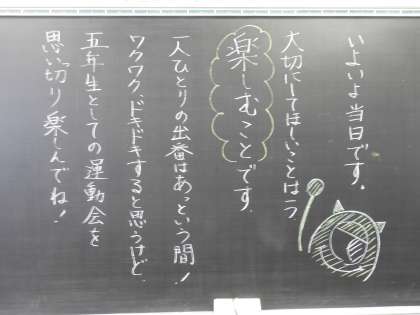 いよいよ当日です。
大切にしてほしいことは1つ
楽しむことです。
一人ひとりの出番はあっという間！
ワクワク、ドキドキすると思うけど、
五年生としての運動会を
思い切り楽しんでね！